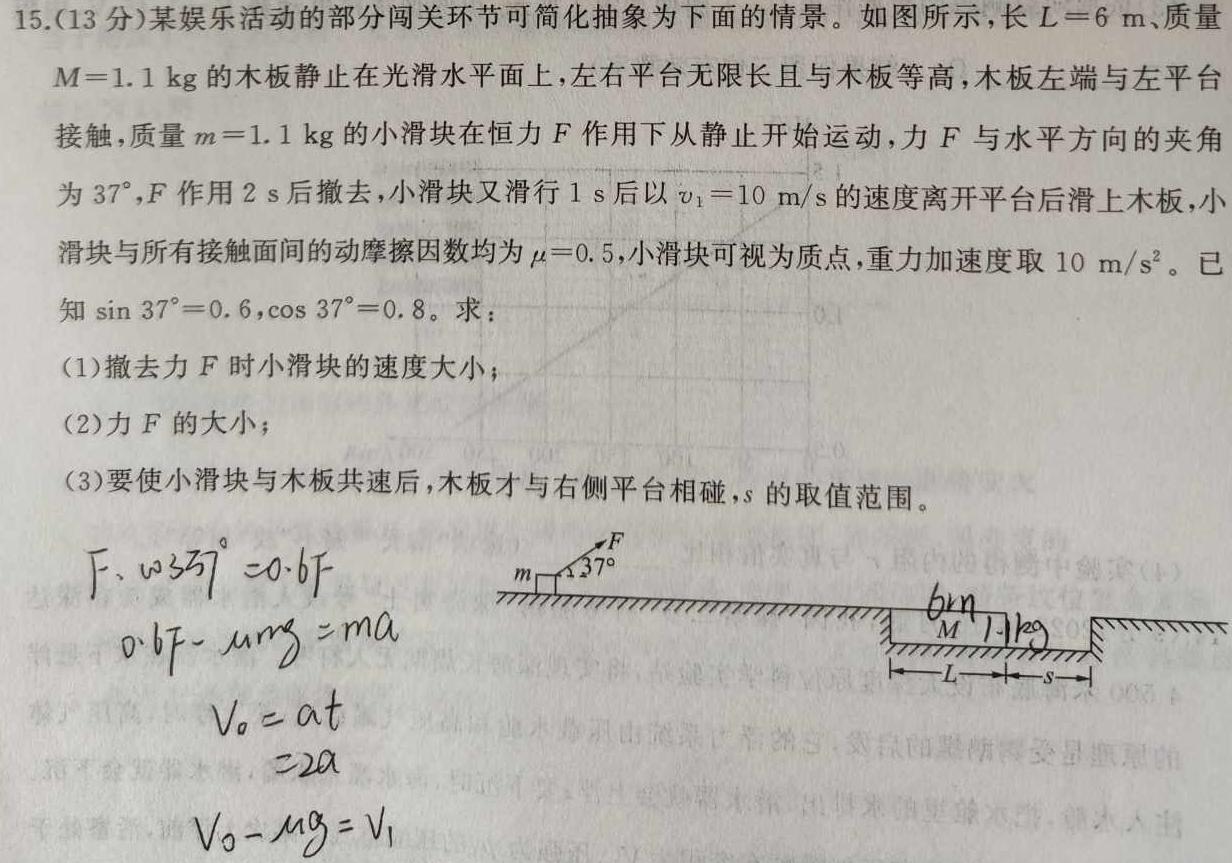 15.(13 分)某娱乐活动的部分闯关环节可简化抽象为下面的情景。如图所示,长 L=6 m、质量
M=1.1 kg 的木板静止在光滑水平面上,左右平台无限长且与木板等高,木板左端与左平台
接触,质量 m=1.1 kg 的小滑块在恒力 F 作用下从静止开始运动,力 F 与水平方向的夹角
为 37°,F 作用 2 s 后撤去,小滑块又滑行 1 s 后以 v₁=10 m/s 的速度离开平台后滑上木板,小
滑块与所有接触面间的动摩擦因数均为 μ=0.5,小滑块可视为质点,重力加速度取 10 m/s²。已
知 sin 37°=0.6,cos 37°=0.8。求:
(1)撤去力 F 时小滑块的速度大小;
(2)力 F 的大小;
(3)要使小滑块与木板共速后,木板才与右侧平台相碰,s 的取值范围。
F
m 37°
6m
M 1.1kg
L s
F、cos37° =0.6F
0.6F-μmg=ma
V₀=at
=2a
V₀-μg=V₁